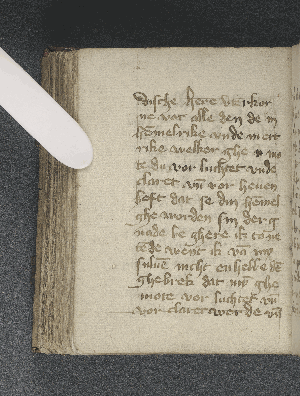 dische here vterkor
ne vor alle den de in
hemelrike vnde in ert
rike welker ghe
te du vor luchtet vnde
claret vn vor heuen
heft dat se din hemel
ghe worden sin der g
nade be ghere ik to ne
went ik vā my
suluē nicht en hebbe
ghebrek dat my ghe
mote vor luchtet vn
vor claret werde vn